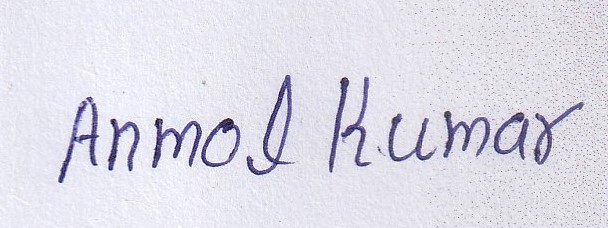 Anmol Kumar